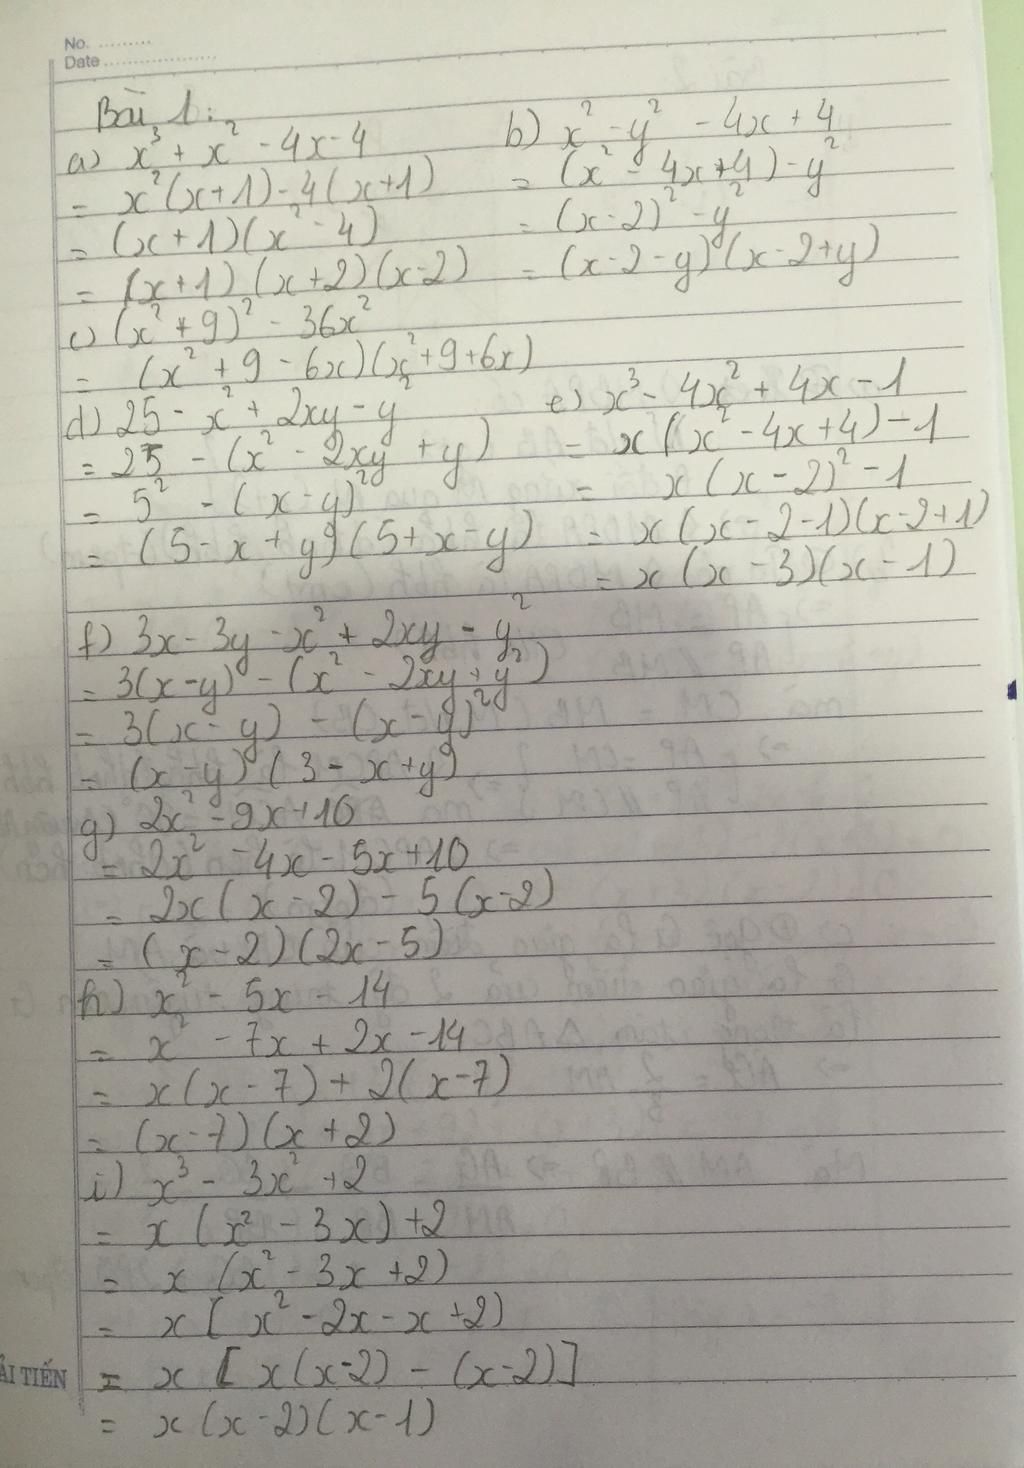 No. .........
Date ...................
Bài 1:
a) x³ + x² - 4x - 4
= x²(x+1) - 4(x+1)
= (x+1)(x² - 4)
= (x+1)(x+2)(x-2)
b) x² - y² - 4x + 4
= (x² - 4x + 4) - y²
= (x-2)² - y²
= (x-2-y)(x-2+y)
c) (x² + 9)² - 36x²
= (x² + 9 - 6x)(x² + 9 + 6x)
d) 25 - x² + 2xy - y²
= 25 - (x² - 2xy + y)
= 5² - (x-y)²
= (5 - x + y)(5 + x - y)
e) x³ - 4x² + 4x - 1
= x(x² - 4x + 4) - 1
= x(x-2)² - 1
= x(x-2-1)(x-2+1)
= x(x-3)(x-1)
f) 3x - 3y - x² + 2xy - y²
= 3(x-y) - (x² - 2xy + y²)
= 3(x-y) - (x-y)²
= (x-y)(3 - x + y)
g) 2x² - 9x + 10
= 2x² - 4x - 5x + 10
= 2x(x-2) - 5(x-2)
= (x-2)(2x-5)
h) x² - 5x - 14
= x² - 7x + 2x - 14
= x(x-7) + 2(x-7)
= (x-7)(x+2)
i) x³ - 3x² + 2
= x(x² - 3x) + 2
= x(x² - 3x + 2)
= x[x² - 2x - x + 2)
= x[x(x-2) - (x-2)]
= x(x-2)(x-1)
ẢI TIẾN